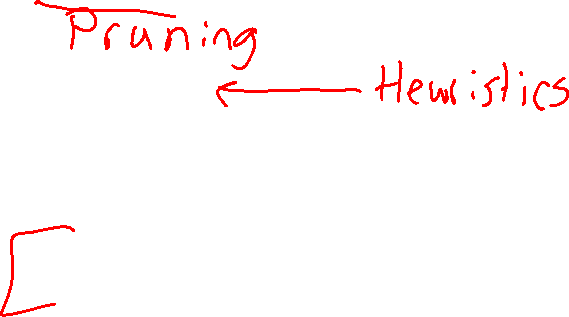 Pruning
← Heuristics
[